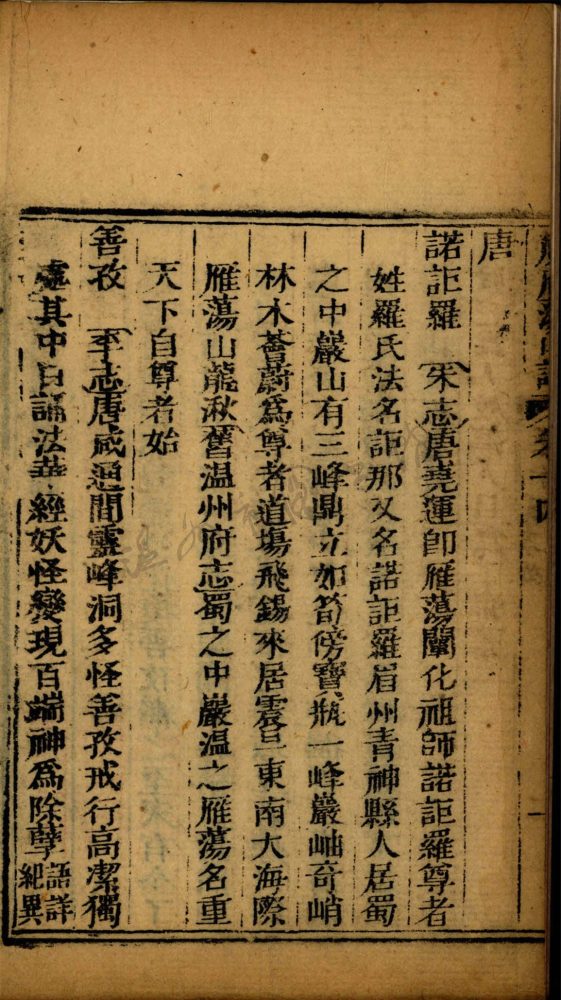 唐
諾詎羅 (朱志)唐堯運卽雁蕩闡化祖師諾詎羅尊者
姓羅氏法名詎那又名諾詎羅眉州青神縣人居蜀
之中巖山有三峰鼎立如筍傍寶瓶一峰巖岫奇峭
林木薈蔚爲尊者道塲飛錫來居震旦東南大海際
雁蕩山龍湫(舊温州府志)蜀之中巖温之雁蕩名重
天下自尊者始
善孜 (李志)唐咸通間靈峰洞多怪善孜戒行高潔獨
處其中日誦法華經妖怪變現百端神爲除孽語詳紀異
卷十四
一